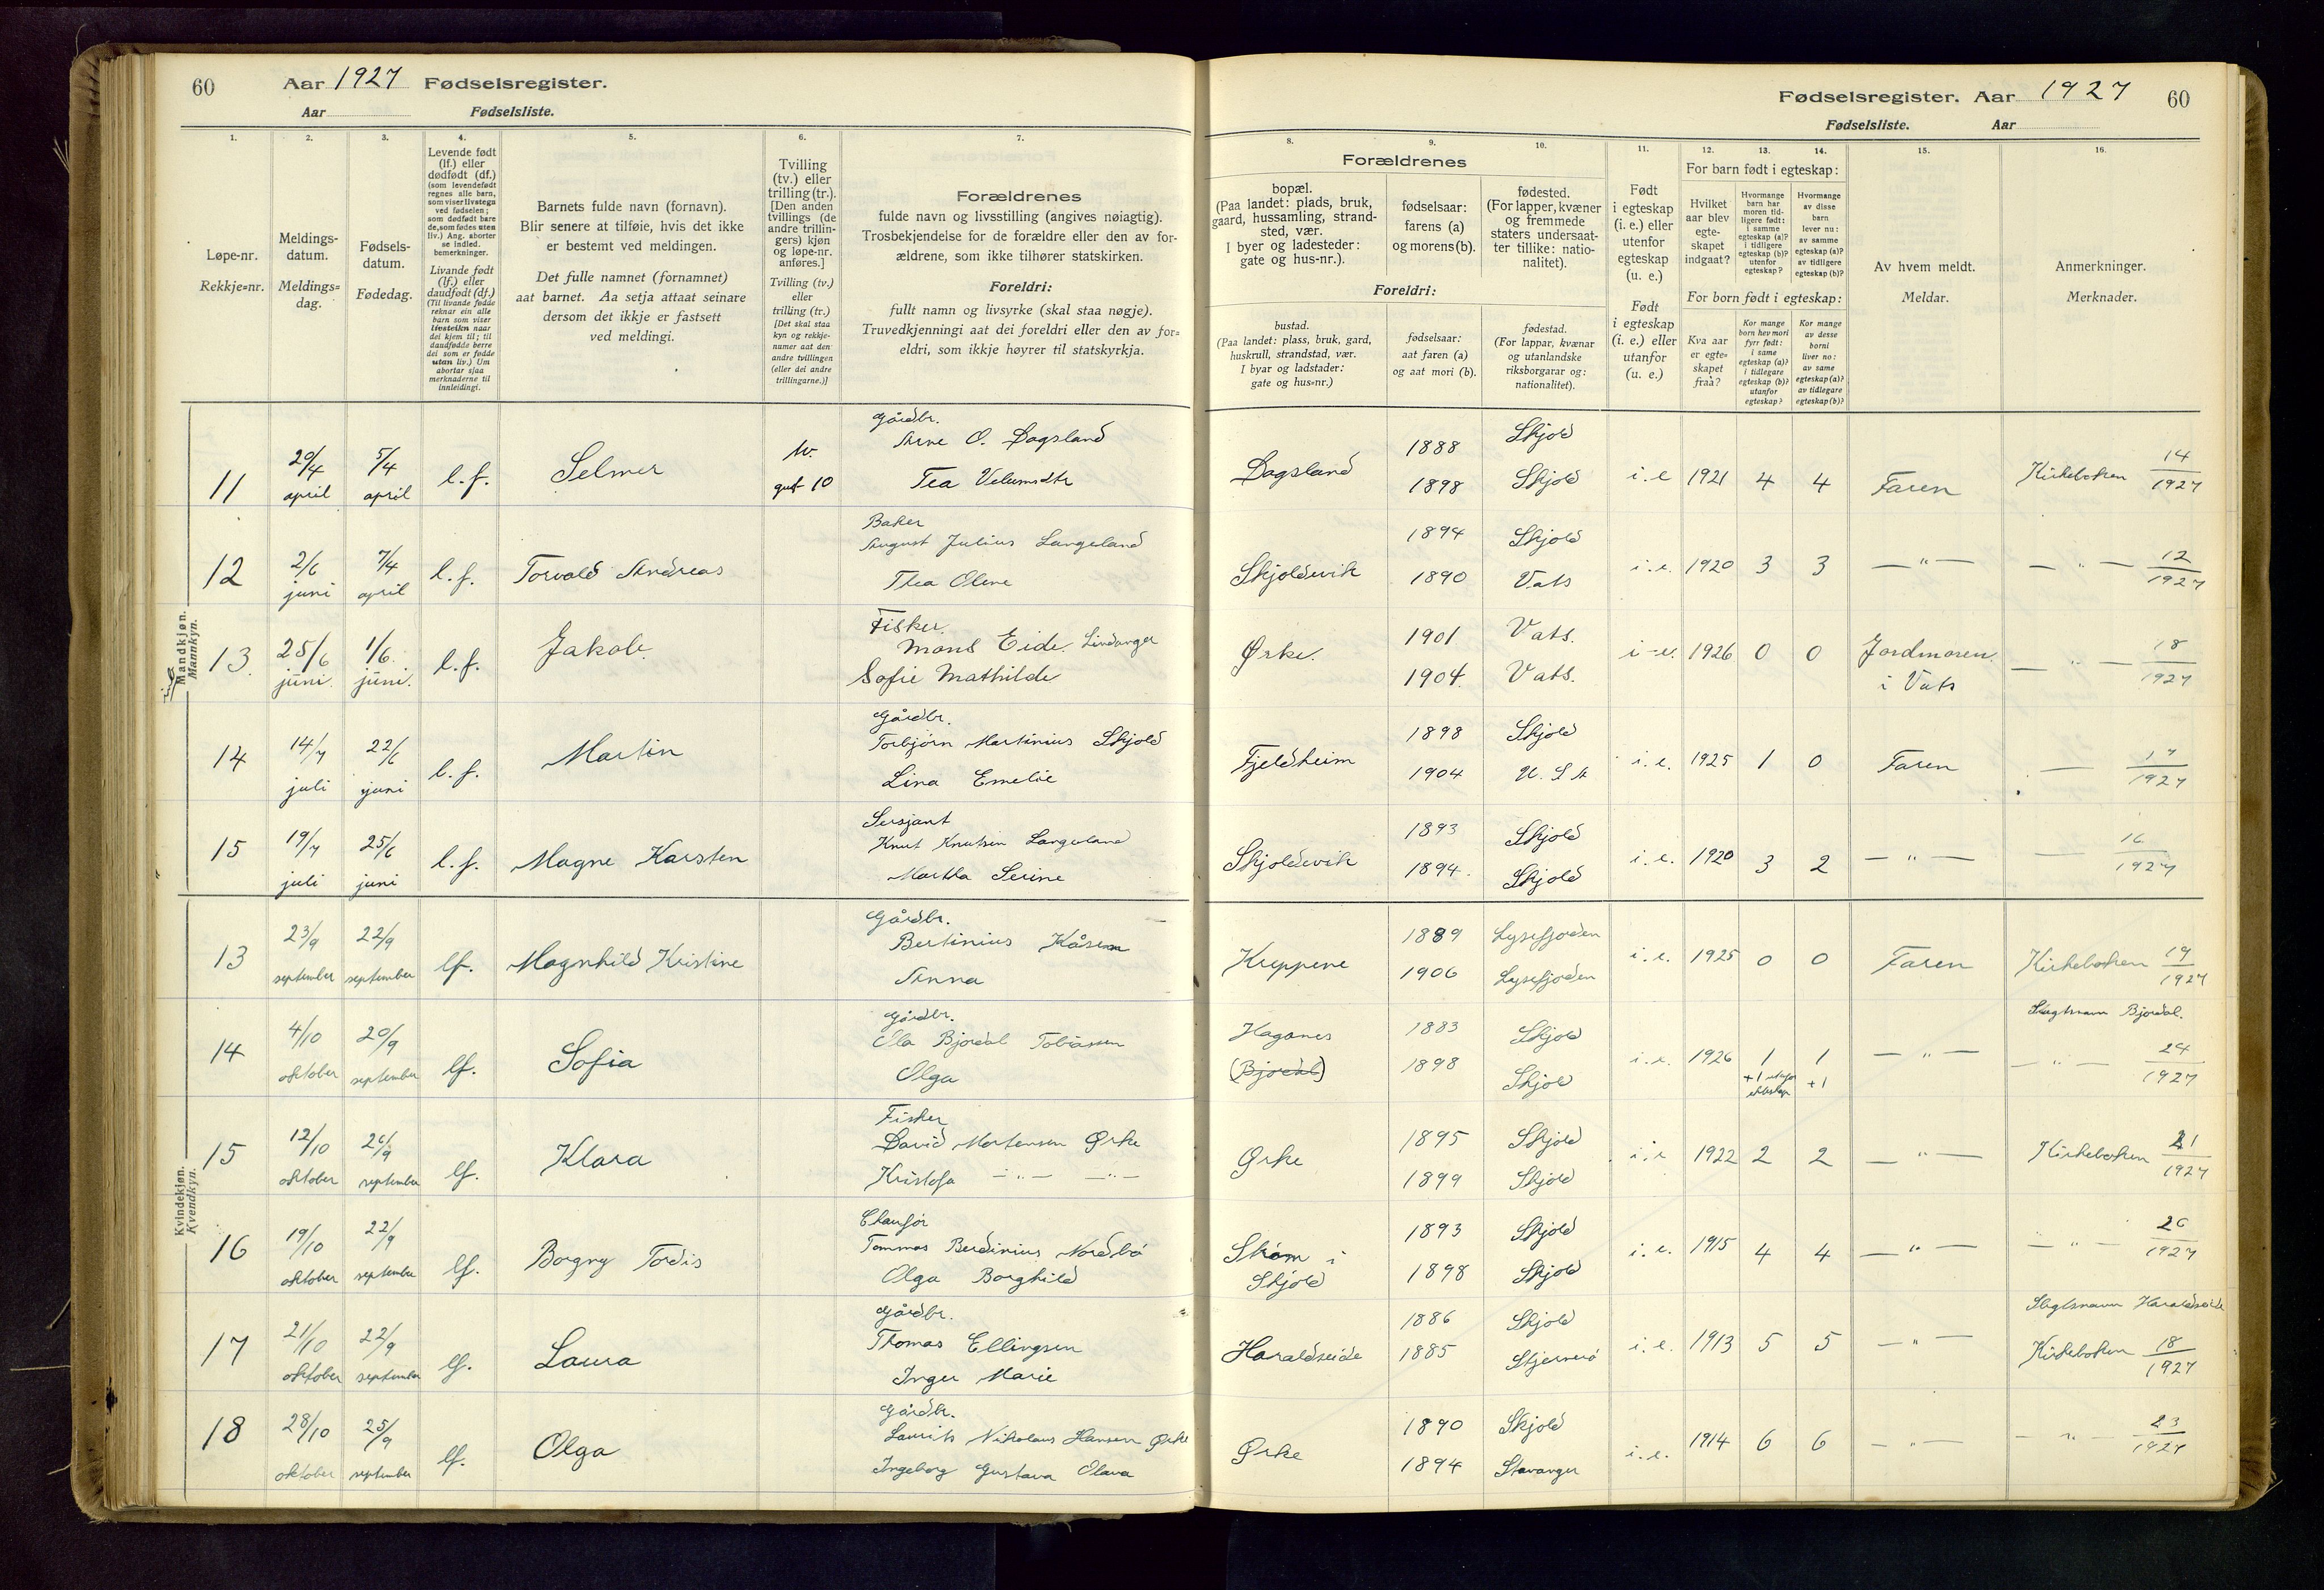 60 Aar 1927 Fødselsregister.
Aar Fødselsliste.
Fødselsregister. Aar 1927 60
Fødselsliste. Aar
1. 2. 3. 4. 5. 6. 7.
Løpe-nr.
Rekkje=nr.
Meldings-
datum.
Meldings=
dag.
Fødsels-
datum.
Fødedag.
Levende født
(lf.) eller
dødfødt (df.)
(som levendefødt
regnes alle barn,
som viser livstegn
ved fødselen;
som dødfødt bare
de, som fødes uten
liv.) Ang. aborter
se indled.
bemerkninger.
Livande født
(lf.) eller
daudfødt (df.)
(Til livande fødde
reknar ein alle
barn som viser
livsteikn naar
dei kjem til; til
daudfødde berre
dei som er fødde
utan liv.) Um
abortar sjaa
merknaderne til
innleidingi.
Barnets fulde navn (fornavn).
Blir senere at tilføie, hvis det ikke
er bestemt ved meldingen.
Det fulle namnet (fornamnet)
aat barnet. Aa setja attaat seinare
dersom det ikkje er fastsett
ved meldingi.
Tvilling
(tv.) eller
trilling (tr.).
[Den anden
tvillings (de
andre trillin-
gers) kjøn
og løpe-nr.
anføres.]
Tvilling (tv.)
eller
trilling (tr.)
[Det skal staa
kyn og rekkje-
numer aat den
andre tvillingen
(eller dei andre
trillingarne.)]
Forældrenes
fulde navn og livsstilling (angives nøiagtig).
Trosbekjendelse for de forældre eller den av for-
ældrene, som ikke tilhører statskirken.
Foreldri:
fullt namn og livsyrke (skal staa nøgje).
Truvedkjenningi aat dei foreldri eller den av for=
eldri, som ikkje høyrer til statskyrkja.
8. 9. 10. 11. 12. 13. 14. 15. 16.
Forældrenes
bopæl.
(Paa landet: plads, bruk,
gaard, hussamling, strand-
sted, vær.
I byer og ladesteder:
gate og hus-nr.).
fødselsaar:
farens (a)
og morens (b).
fødested.
(For lapper, kvæner
og fremmede
staters undersaat-
ter tillike: natio-
nalitet).
Foreldri:
bustad.
(Paa landet: plass, bruk, gard,
huskrull, strandstad, vær.
I byar og ladstader:
gate og hus=nr.)
fødselsaar:
aat faren (a)
og aat mori (b).
fødestad.
(For lappar, kvænar
og utanlandske
riksborgarar og:
nationalitet).
Født
i egteskap
(i. e.) eller
utenfor
egteskap
(u. e.)
Født
i egteskap
(i. e.) eller
utanfor
(u. e.)
For barn født i egteskap:
Hvilket
aar blev
egte-
skapet
indgaat?
Hvormange
barn har
moren tid-
ligere født:
i samme
egteskap (a)?
i tidligere
egteskap (b)?
utenfor
egteskap?
Hvormange
av disse
barn
lever nu:
av samme
egteskap (a)?
av tidligere
egteskap (b)?
For born født i egteskap:
Kva aar
er egte=
skapet
fraa?
Kor mange
born hev mori
fyrr født:
i same
egteskap (a)?
i tidlegare
egteskap (b)?
utanfor
egteskap?
Kor mange
av desse
borni
liver no:
av same
egteskap (a)?
av tidlegare
egteskap (b)?
Av hvem meldt.
Meldar.
Anmerkninger.
Merknader.
Mandkjøn.
Mannkyn.
11 20/4 april 5/4 april l.f. Selmer tv. gut 10 Gårdbr. Arne O. Dagsland
Tea Velumsdtr
Dagsland 1888 1898 Skjold Skjold i.e 1921 4 4 Faren Kirkeboken 14/1927
12 2/6 juni 7/4 april l.f. Torvald Andreas Baker August Julius Langeland
Thea Oline
Skjoldevik 1894 1890 Skjold Vats i.e. 1920 3 3 — " — — " — 12/1927
13. 25/6 juni. 1/6. juni. l.f. Jakob. Fisker. Mons Eide. Lindanger
Sofie Mathilde
Ørke. 1901 1904. Vats. Vats. i-e. 1926 0 0 Jordmoren. i Vats — " — 18/1927
14 14/7 juli 22/6 juni l.f. Martin Gårdbr. Torbjørn Martinius Skjold
Lina Emelie
Fjeldheim 1898 1904 Skjold U.S A i.e. 1925 1 0 Faren — 17/1927
15 19/7 juli 25/6 juni l.f. Magne Karsten Sersjant Knut Knutsen Langeland
Martha Serine
Skjoldevik 1893 1894. Skjold Skjold i.e. 1920 3 2 — " — — 16/1927
Kvindekjøn.
Kvendkyn.
13 23/9 september 22/9 september lf. Magnhild Kristine Gårdbr. Bertinius Kåsen
Anna
Kreppene 1889 1906 Lysefjorden Lysefjorden i.e. 1925 0 0 Faren Kirkeboken 19/1927
14 4/10 oktober 20/9 september lf. Sofia Gårdbr. Ola Bjordal Tobiassen
Olga
Haganes (Bjordal) 1883 1898 Skjold Skjold i.e. 1926 1 +1 1 +1 — " — Slegtsnavn Bjordal. — " — 24/1927
15 12/10 oktober 26/9 september lf. Klara Fisker David Mortensen Ørke
Kristofa — " — — " —
Ørke 1895 1899 Skjold Skjold i.e 1922 2 2 — " — Kirkeboken 21/1927
16 19/10 oktober 22/9 september lf. Borgny Tordis Chaufør Tommas Berdinius Nordbø
Olga Borghild
Skåm i Skjold 1893 1898 Skjold Skjold i.e. 1915 4 4 — " — — " — 26/1927
17 21/10 oktober 22/9 september lf. Laura Gårdbr. Thomas Ellingsen
Inger Marie
Haraldseide 1886 1885 Skjold Stjernerø i.e. 1913 5 5 — " — Slegtsnavn Haraldseide Kirkeboken 18/1927
18 28/10 oktober 25/9 september lf. Olga Gårdbr. Laurits Nikolaus Hansen Ørke
Ingeborg Gustava Olava
Ørke 1890 1894 Skjold Stavanger i.e. 1914 6 6 — " — — " — 23/1927